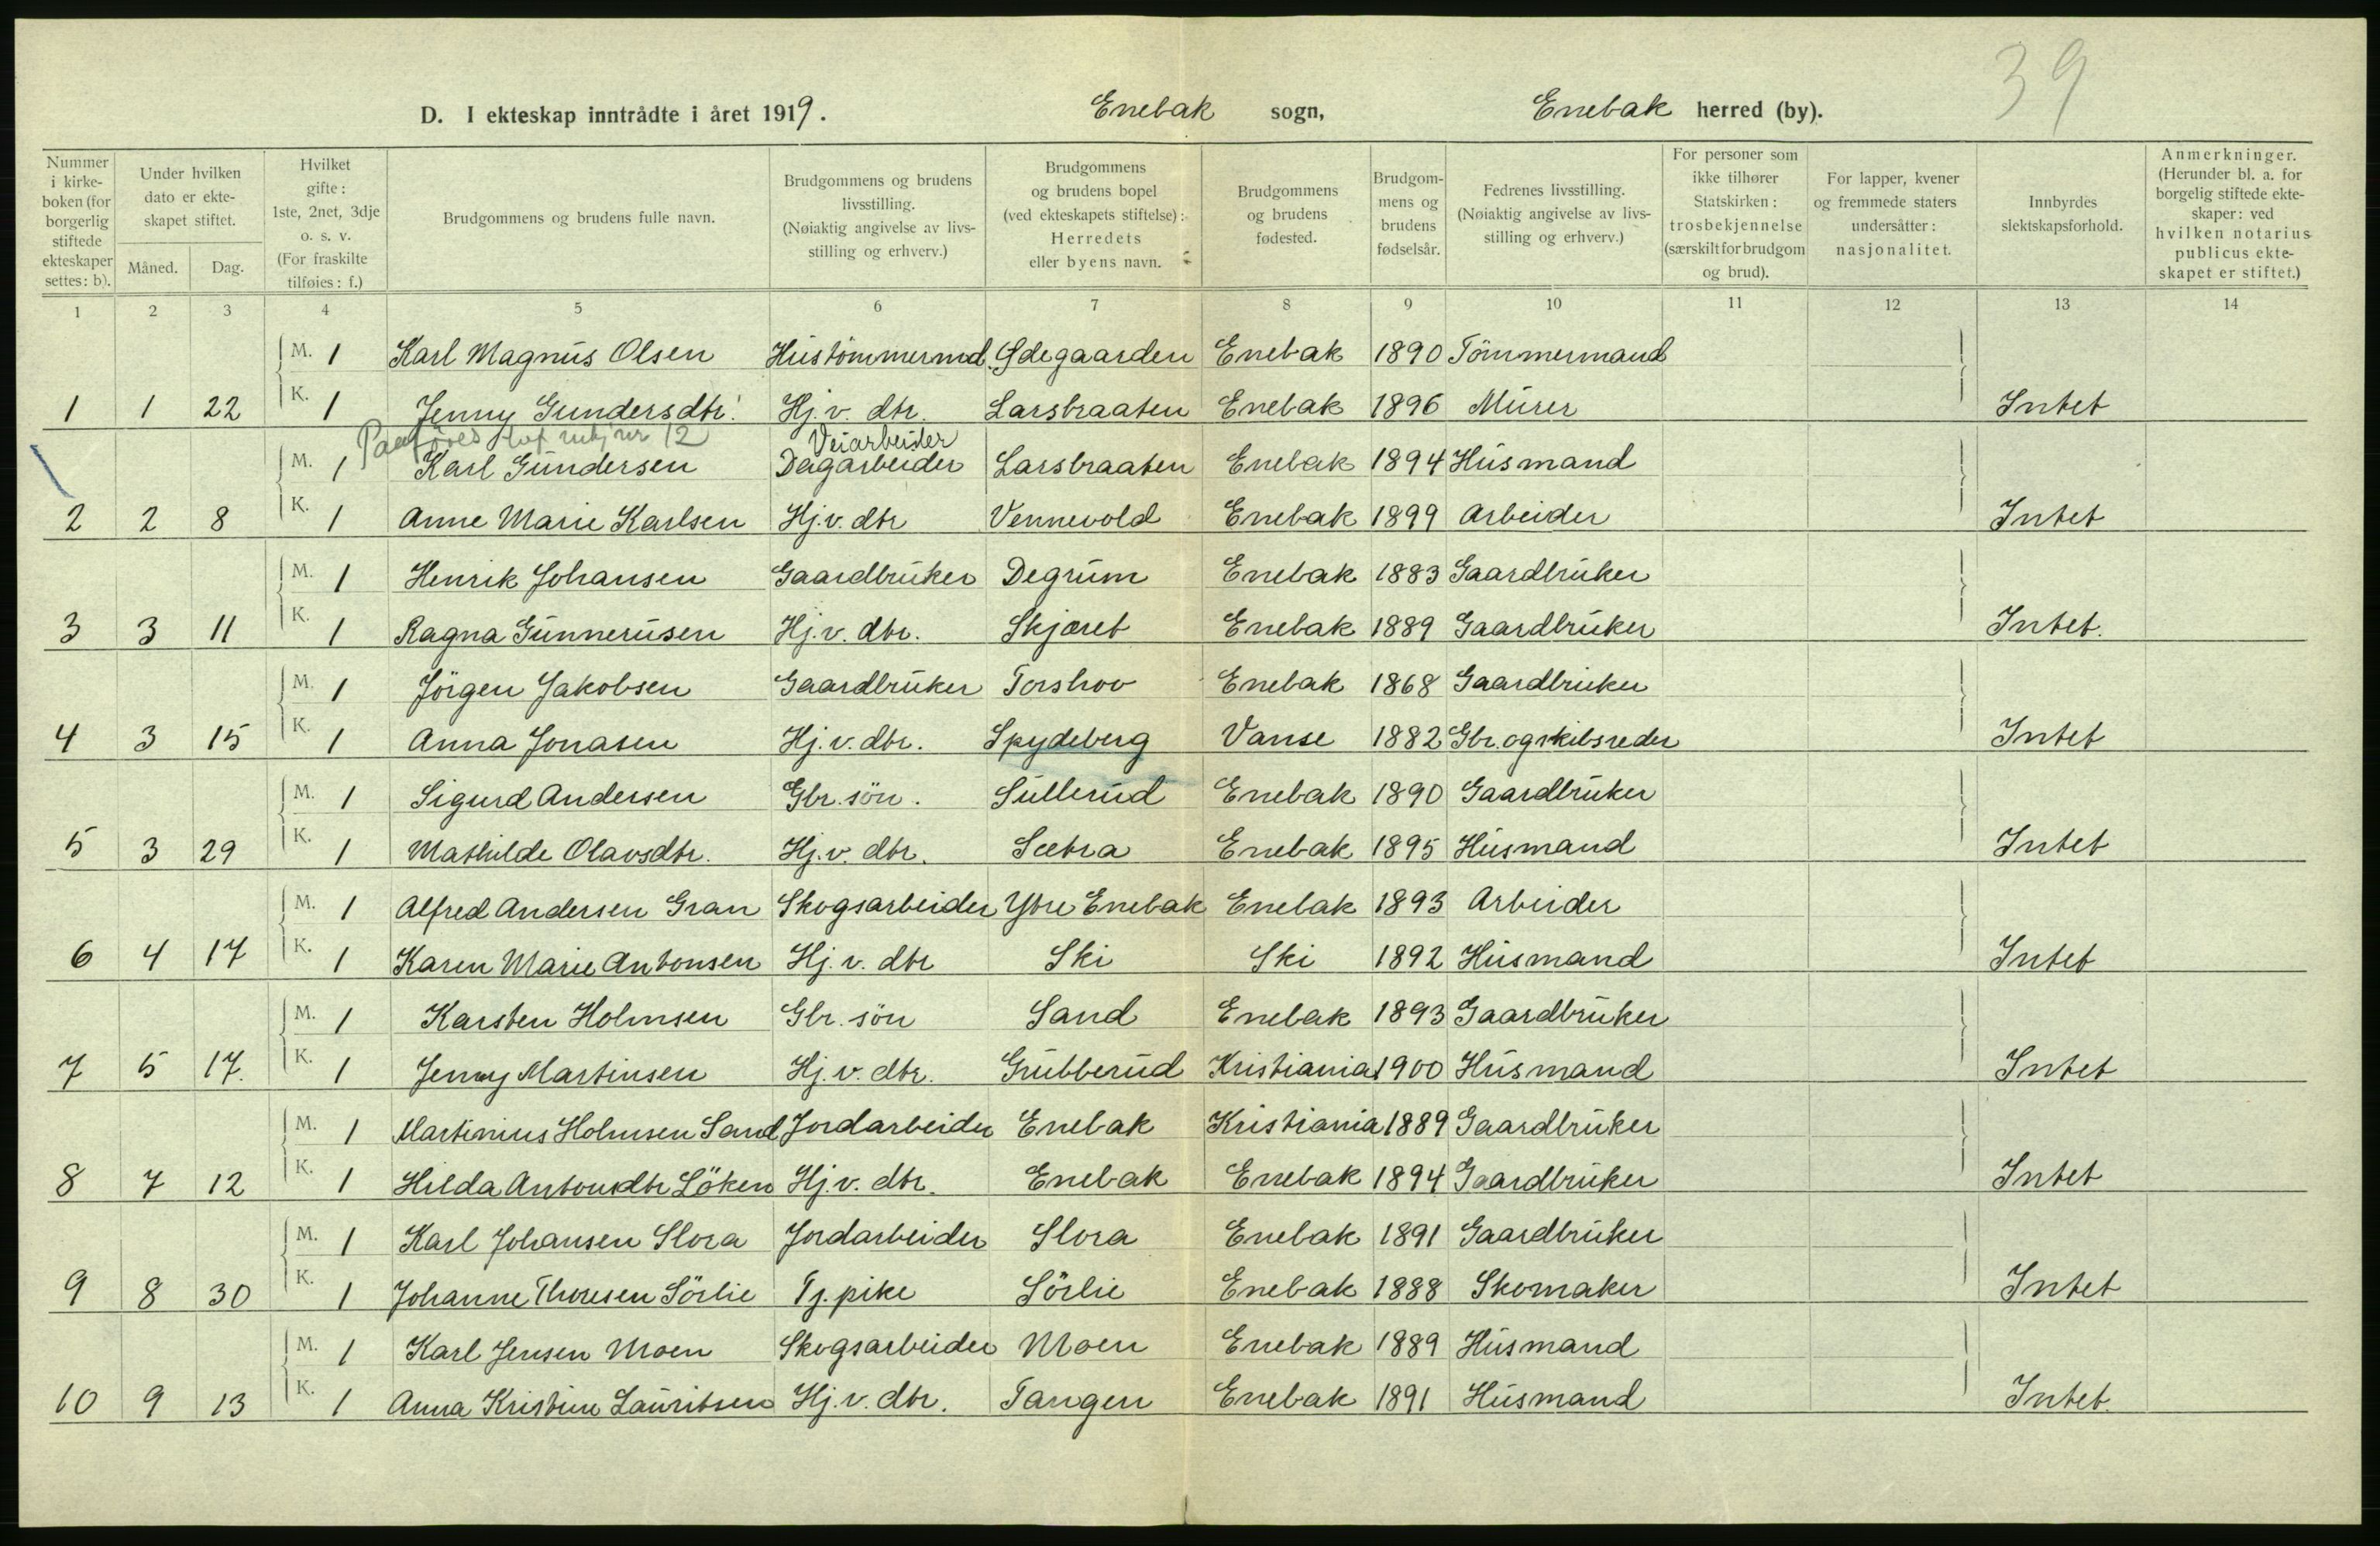 39
D. I ekteskap inntrådte i året 1919. Enebak sogn, Enebak herred (by).
Nummer i kirke-boken (for borgerlig stiftede ekteskaper settes: b).
Under hvilken dato er ekte-skapet stiftet.
Måned. Dag.
Hvilket gifte: 1ste, 2net, 3dje o. s. v. (For fraskilte tilføies: f.)
Brudgommens og brudens fulle navn.
Brudgommens og brudens livsstilling. (Nøiaktig angivelse av livs-stilling og erhverv.)
Brudgommens og brudens bopel (ved ekteskapets stiftelse): Herredets eller byens navn.
Brudgommens og brudens fødested.
Brudgom-mens og brudens fødselsår.
Fedrenes livsstilling. (Nøiaktig angivelse av livs-stilling og erhverv.)
For personer som ikke tilhører Statskirken: trosbekjennelse (særskilt for brudgom og brud).
For lapper, kvener og fremmede staters undersåtter: nasjonalitet.
Innbyrdes slektskapsforhold.
Anmerkninger. (Herunder bl. a. for borgelig stiftede ekte-skaper: ved hvilken notarius publicus ekte-skapet er stiftet.)
1 2 3 4 5 6 7 8 9 10 11 12 13 14
M. 1 Karl Magnus Olsen Hustömmermd. Ødegaarden Enebak 1890 Tömmermand
1 1 22 K. 1 Jenny Gundersdtr. Hj. v. dtr. Larsbraaten Enebak 1896 Murer Intet
12 Veiarbeider
M. 1 Karl Gundersen Dagarbeider Larsbraaten Enebak 1894 Husmand
2 2 8 K. 1 Anne Marie Karlsen Hj. v. dtr Vennevold Enebak 1899 Arbeider Intet
M. 1 Henrik Johansen Gaardbruker Degrum Enebak 1883 Gaardbruker
3 3 11 K. 1 Ragna Gunnerusen Hj. v. dtr. Skjæret Enebak 1889 Gaardbruker Intet.
M. 1 Jörgen Jakobsen Gaardbruker Torshov Enebak 1868 Gaardbruker
4 3 15 K. 1 Anna Jonasen Hj. v. dtr. Spydeberg Vanse 1882 Gbr. og skibsreder Intet
M. 1 Sigurd Andersen Gbr. sön. Sullerud Enebak 1890 Gaardbruker
5 3 29 K. 1 Mathilde Olavsdtr. Hj. v. dtr. Sætra Enebak 1895 Husmand Intet
M. 1 Alfred Andersen Gran Skogsarbeider Ytre Enebak Enebak 1893 Arbeider
6 4 17 K. 1 Karen Marie Antonsen Hj. v. dtr Ski Ski 1892 Husmand Intet
M. 1 Karsten Holmsen Gbr. sön Sand Enebak 1893 Gaardbruker
7 5 17. K. 1 Jenny Martinsen Hj. v. dtr. Grubberud Kristiania 1900 Husmand Intet
M. 1 Martinius Holmsen Sand Jordarbeider Enebak Kristiania 1889 Gaardbruker
8 7 12 K. 1 Hilda Antonsdtr Löken Hj. v. dtr. Enebak Enebak 1894 Gaardbruker Intet
M. 1 Karl Johansen Slora Jordarbeider Slora Enebak 1891 Gaardbruker
9 8 30 K. 1 Johanne Thoresen Sörlie Tj. pike Sörlie Enebak 1888 Skomaker Intet
M. 1 Karl Jensen Moen Skogsarbeider Moen Enebak 1889 Husmand
10 9 13 K. 1 Anna Kristine Lauritsen Hj. v. dtr. Tangen Enebak 1891 Husmand Intet.